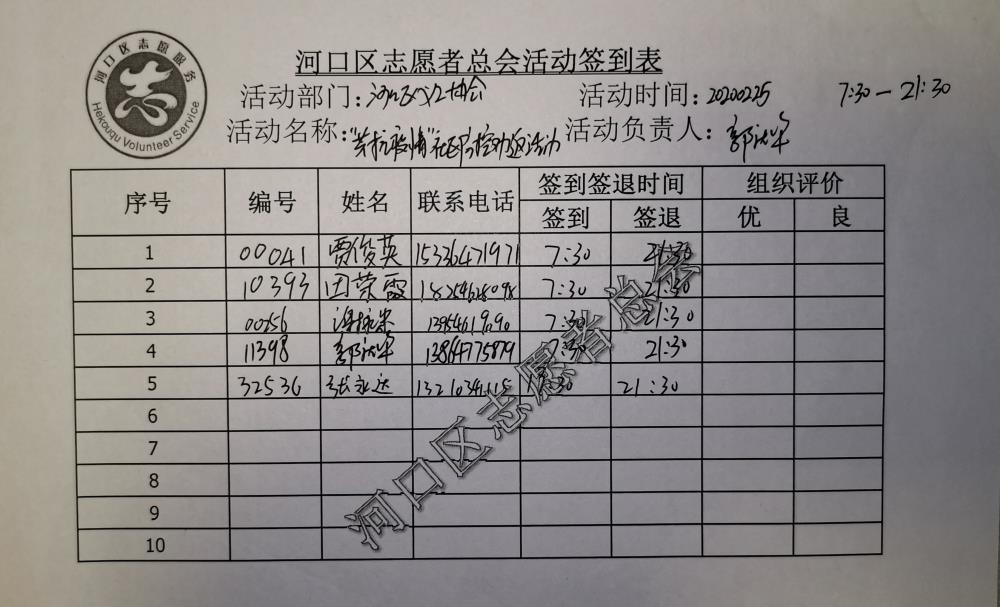 河口区志愿服务
Hekouqu Volunteer Service
河口区志愿者总会活动签到表
活动部门:河口区义工协会 活动时间:20200225 7:30—21:30
活动名称:"共抗疫情" 活动 活动负责人:
序号 编号 姓名 联系电话 签到签退时间 组织评价
签到 签退 优 良
1 00041 贾俊英 15336471971 7:30 21:30
2 10393 田荣霞 7:30 21:30
3 7:30 21:30
4 11398 13864775879 7:30 21:30
5 32536 张永达 21:30
6
7
8
9
10
河口区志愿者总会